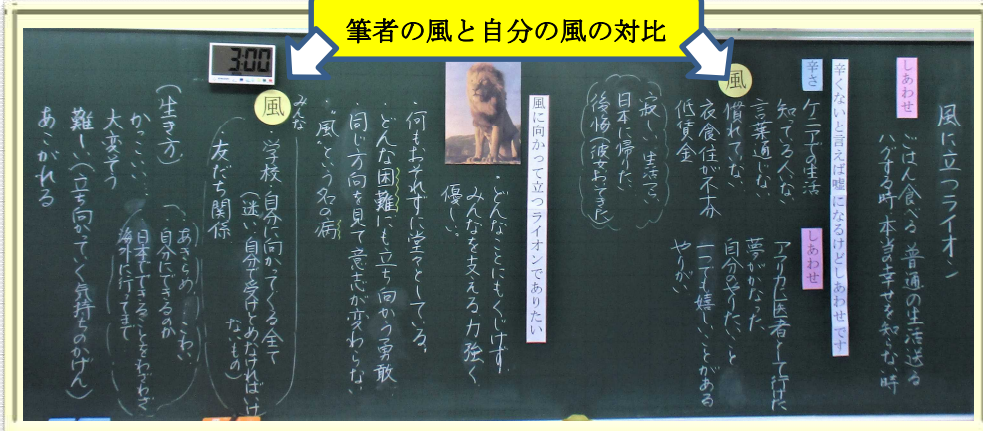 筆者の風と自分の風の対比
風に立つライオン
しあわせ
ごはん食べる 普通の生活送る
ハグする時 本当の幸せを知らない時
辛くないと言えば嘘になるけどしあわせです
辛さ
ケニアでの生活
知っている人いない
言葉通じない
慣れていない
衣食住が不十分
低賃金
しあわせ
アフリカに医者として行けた
夢がかなった
自分がやりたいこと
一つでも嬉しいことがある
やりがい
風
寂しい生活で、
日本に帰りた
後悔(彼女おいてきた)
風に向かって立つライオンでありたい
・どんなことにもくじけず
みんなを支える、力強く
優しい。
・何もおそれずに堂々としている。
・どんな困難にも立ち向かう勇敢
・同じ方向を見て意志が変わらない
・"風"という名の病
3:00
みんな
風
・学校・自分に向かってくる全て
(迷い、自分で受けとめなければいけ
ないもの)
・友だち関係
(生き方)
かっこいい
大変そう
難しい(立ち向かっていく気持ちのかげん)
あこがれる
あきらめ・こわい
・自分にできるのか
・日本でできることをわざわざ
海外に行ってまで